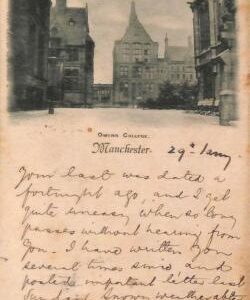 Owens College.
Manchester.
29th Jany
Your last was dated a
fortnight ago, and I get
quite uneasy when so long
passes without hearing from
you. I have written you
several times since and
posted important letter last